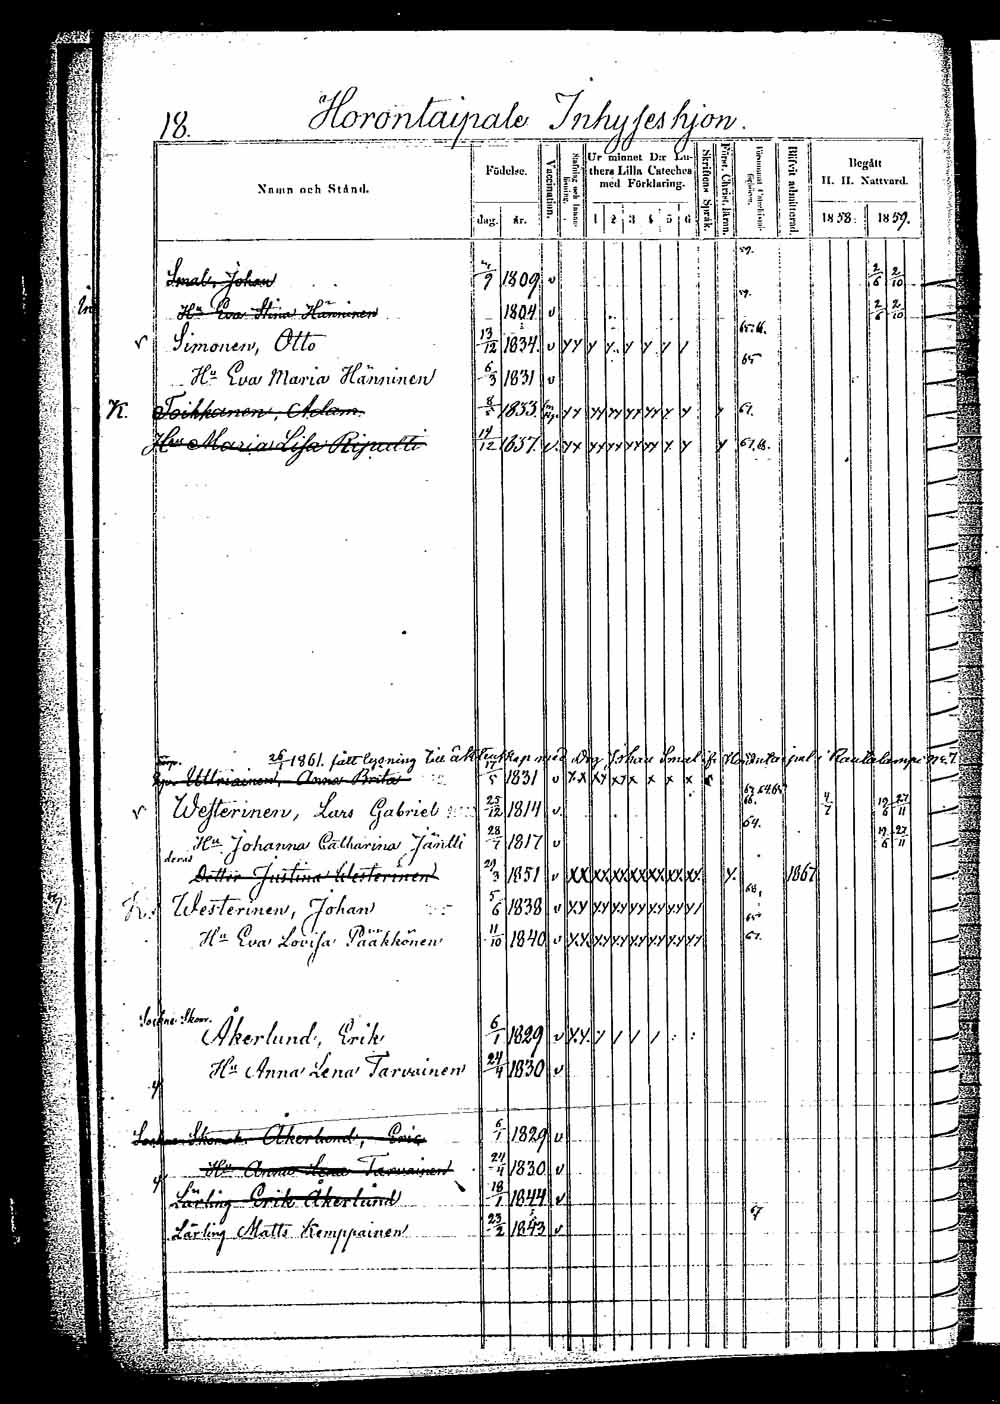 18.
Horontaipale Inhyseshjon.
Namn och Stånd.
Födelse.
dag. år.
Vaccination.
Stafning och Innanläsning.
Ur minnet D:r Luthers Lilla Cateches med Förklaring.
1 2 3 4 5 6
Skriftens Språk.
Först. Christ. läran.
Blifvit admitterad
Begått H. H. Nattvard.
1858. 1859.
Smal, Johan /9 1809 v 59. 2/6 2/10
Hu Eva Stina Hänninen 1804 v 59. 2/6 2/10
v Simonen, Otto 13/12 1834. v
Hu Eva Maria Hänninen 6/3 1831 v 65
K. Toikkanen, Adam. 8/ 1833. 61.
Hu Maria Lisa Ripatti 14/12 1837. v.
26/ 1861. fått lysning till äktenskap med Drg Johan Smal fr Horontaipale i Rautalampi
Ultriainen, Anna Brita 17/5 1831 v
v Westerinen, Lars Gabriel 25/12 1814 v. 4/7 19/6 27/11
Hu Johanna Catharina Jäntti 28/7 1817 v 64. 19/6 27/11
deras
Dotter Justina Westerinen 29/3 1851 v 1867
K. Westerinen, Johan 5/6 1838 v
Hu Eva Lovisa Pääkkönen 11/10 1840 v 67.
Sockne Skom.
Åkerlund, Erik 6/1 1829 v
Hu Anna Lena Tarvainen 24/4 1830 v
Sockne Skom. Åkerlund, Eric 6/1 1829 v
Hu Anna Lena Tarvainen 24/4 1830 v
Lärling Erik Åkerlund 18/1 1844 v
Lärling Matts Kemppainen 23/2 1843 v 67